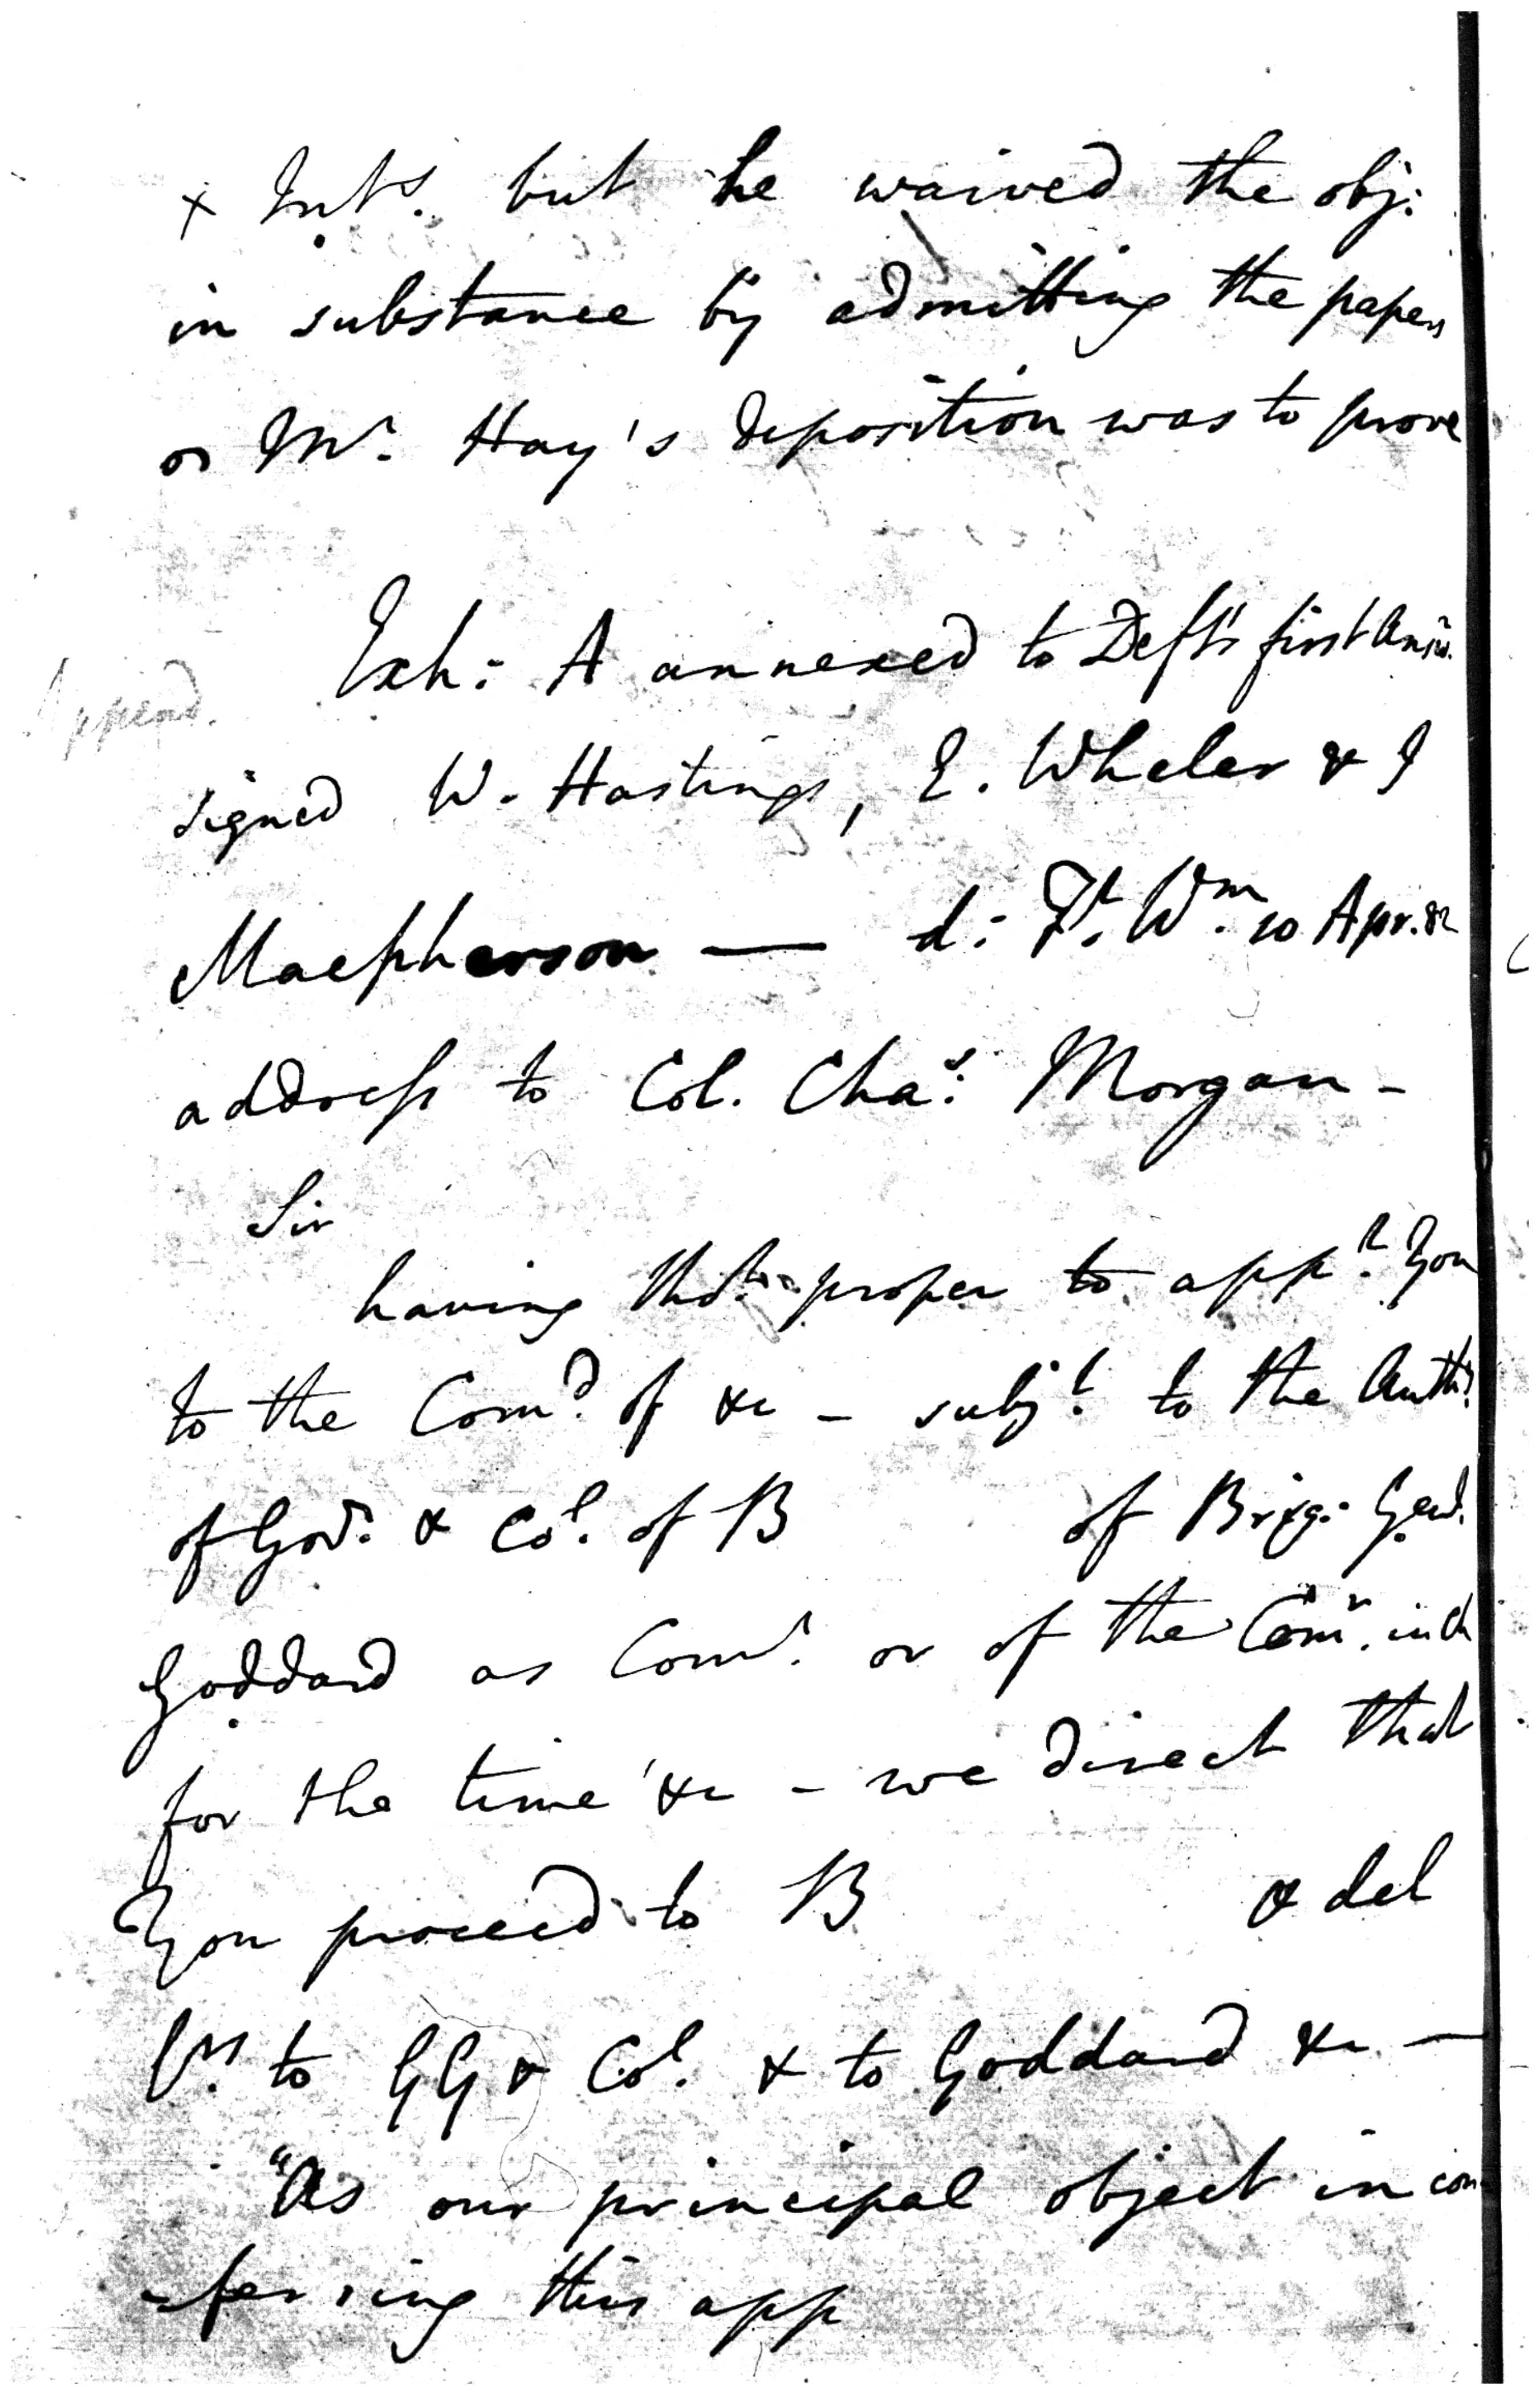 x Ints. but he waived the obj:
in substance by admitting the papers
or Mr. Hay's deposition was to prove
Append.
Exh: A annexed to Defts first Answ.
signed W. Hastings, E. Wheler & J
Macpherson — d: Ft. Wm. 10 Apr. 82
address to Col. Chas: Morgan -
Sir
having thot. proper to appt. You
to the Comd. of &c - subjt. to the Authy.
of Govr. & Col. of B of Brigg: Genl.
Goddard as Comr. or of the Comr. in ch
for the time &c - we direct that
You proceed to B & del
to GG & Col. & to Goddard &c —
"As our principal object in con-
-ferring this app